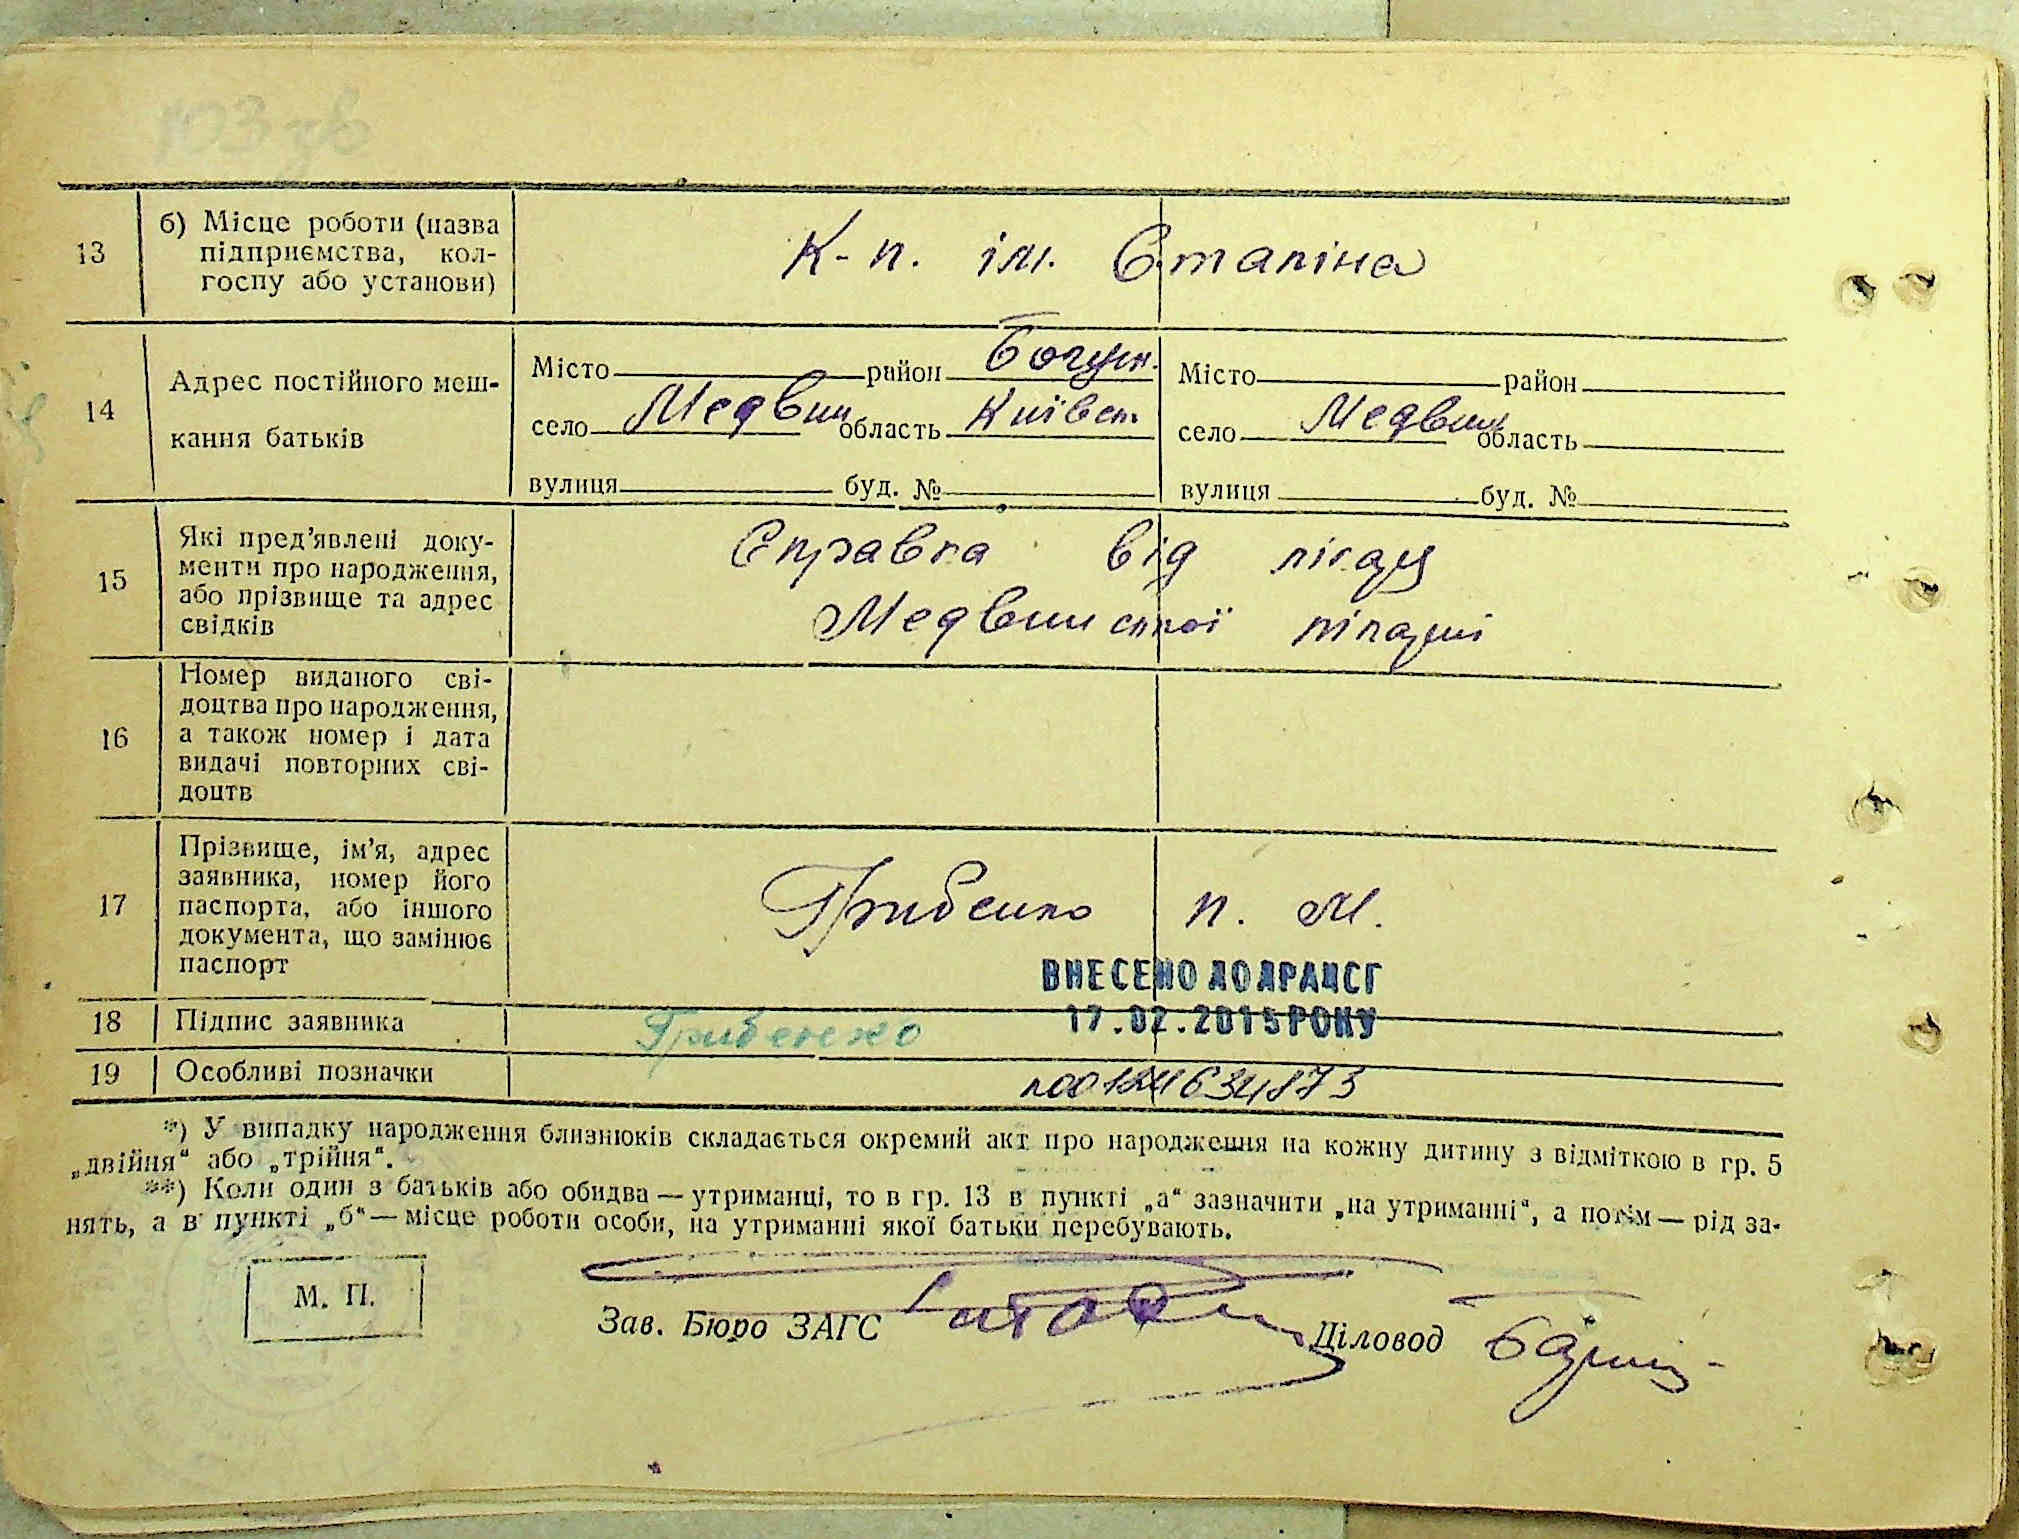 103 зв
13
б) Місце роботи (назва
підприємства, кол-
госпу або установи)
К-п. ім. Сталіна
14
Адрес постійного меш-
кання батьків
Місто район Богусл.
село Медвин область Київськ.
вулиця буд. №
Місто район
село Медвин область
вулиця буд. №
15
Які пред’явлені доку-
менти про народження,
або прізвище та адрес
свідків
Справка від лікаря
Медвинської лікарні
16
Номер виданого сві-
доцтва про народження,
а також номер і дата
видачі повторних сві-
доцтв
17
Прізвище, ім’я, адрес
заявника, номер його
паспорта, або іншого
документа, що замінює
паспорт
Грибенко П. М.
ВНЕСЕНО ДО ДРАЦСГ
17.02.2015 РОКУ
18
Підпис заявника
Грибенко
19
Особливі позначки
*) У випадку народження близнюків складається окремий акт про народження на кожну дитину з відміткою в гр. 5
„двійня“ або „трійня“.
**) Коли один з батьків або обидва — утриманці, то в гр. 13 в пункті „а“ зазначити „на утриманні“, а потім — рід за-
нять, а в пункті „б“ — місце роботи особи, на утриманні якої батьки перебувають.
М. П.
Зав. Бюро ЗАГС
Діловод